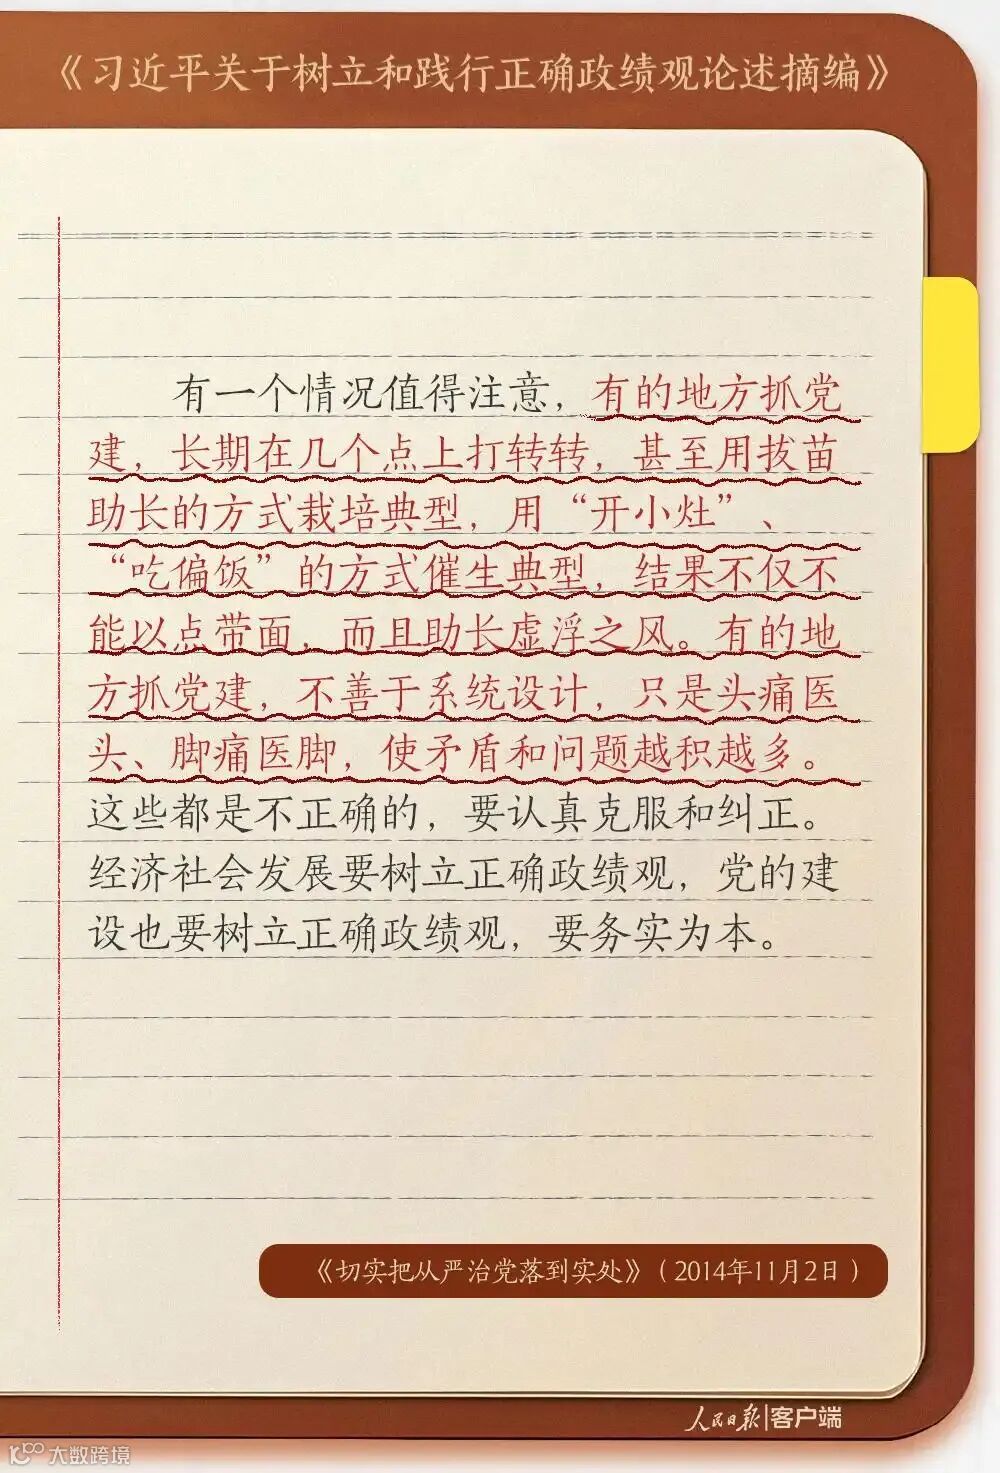 《习近平关于树立和践行正确政绩观论述摘编》
有一个情况值得注意，有的地方抓党
建，长期在几个点上打转转，甚至用拔苗
助长的方式栽培典型，用“开小灶”、
“吃偏饭”的方式催生典型，结果不仅不
能以点带面，而且助长虚浮之风。有的地
方抓党建，不善于系统设计，只是头痛医
头、脚痛医脚，使矛盾和问题越积越多。
这些都是不正确的，要认真克服和纠正。
经济社会发展要树立正确政绩观，党的建
设也要树立正确政绩观，要务实为本。
《切实把从严治党落到实处》（2014年11月2日）
人民日报|客户端
大数跨境